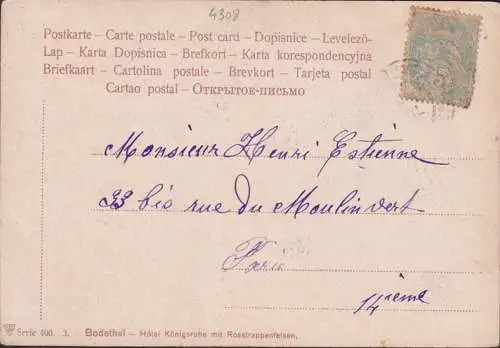 4308
Postkarte – Carte postale – Post card – Dopisnice – Levelező-
Lap – Karta Dopisnica – Brefkort – Karta korespondencyjna
Briefkaart – Cartolina postale – Brevkort – Tarjeta postal
Cartao postal – Открытое-письмо
Monsieur Henri Estienne
33 bis rue du Moulin vert
Paris
14ième
Serie 400. 3. Bodethal – Hôtel Königsruhe mit Rosstrappenfelsen.